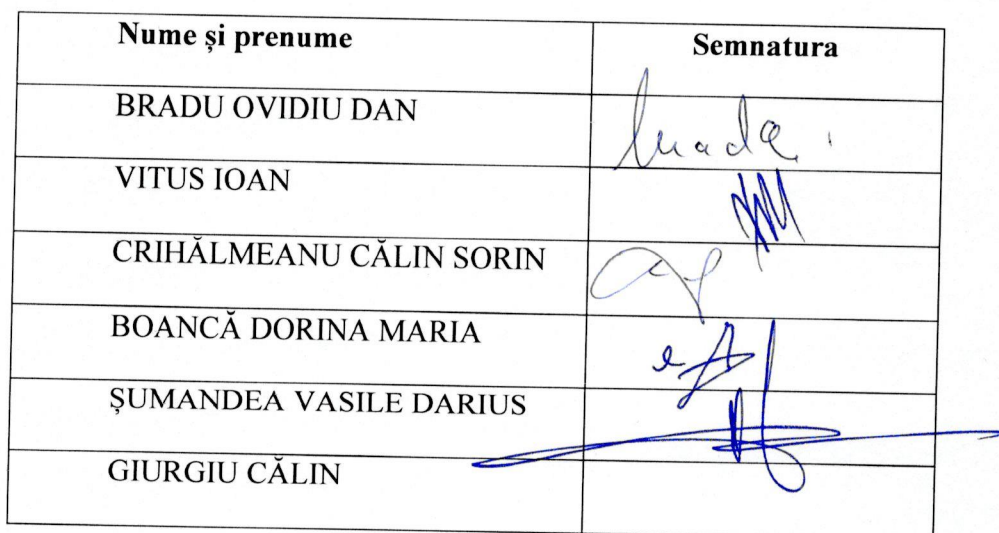 Nume și prenume Semnatura
BRADU OVIDIU DAN
VITUS IOAN
CRIHĂLMEANU CĂLIN SORIN
BOANCĂ DORINA MARIA
ȘUMANDEA VASILE DARIUS
GIURGIU CĂLIN